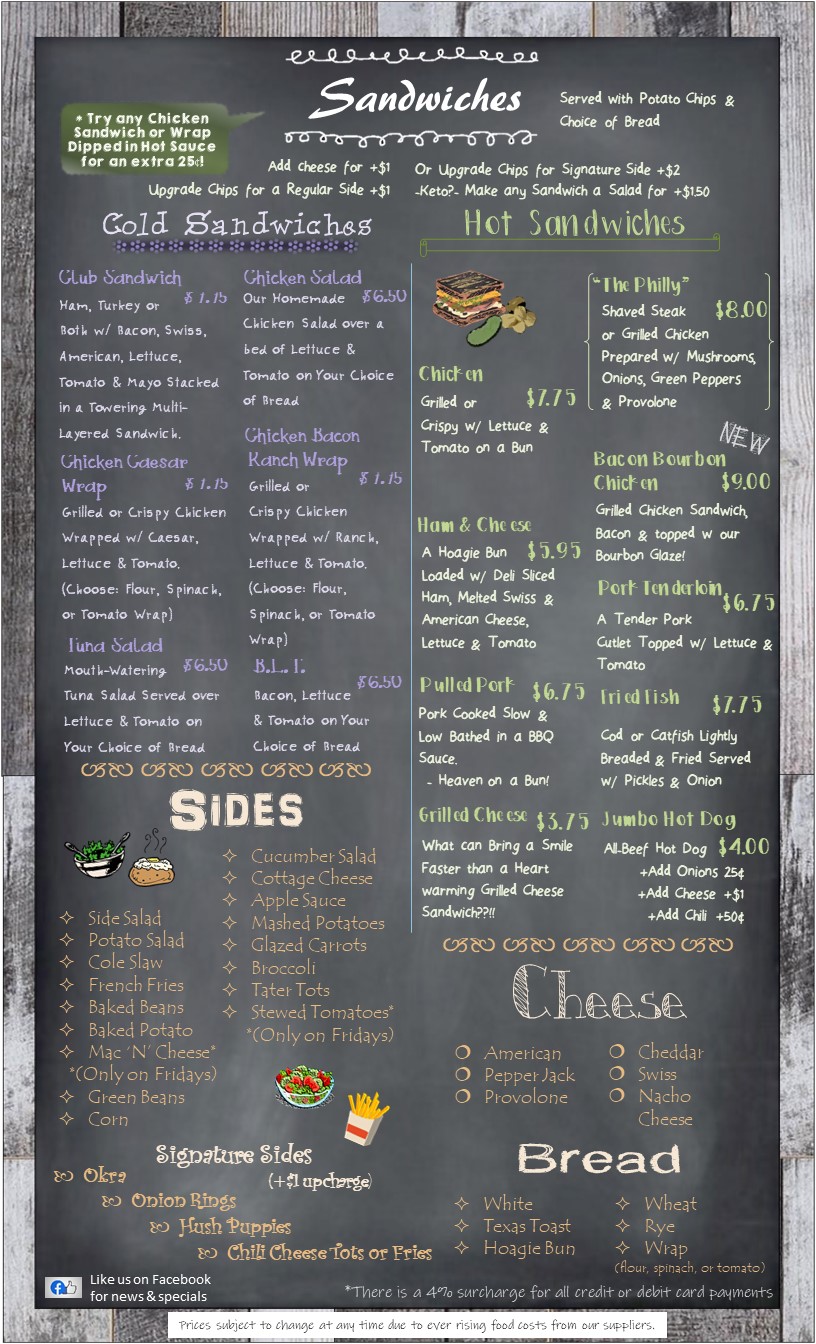 * Try any Chicken
Sandwich or Wrap
Dipped in Hot Sauce
for an extra 25¢!
Sandwiches
Served with Potato Chips &
Choice of Bread
Add cheese for +$1
Upgrade Chips for a Regular Side +$1
Or Upgrade Chips for Signature Side +$2
-Keto?- Make any Sandwich a Salad for +$1.50
Cold Sandwiches
Club Sandwich
Ham, Turkey or
Both w/ Bacon, Swiss,
American, Lettuce,
Tomato & Mayo Stacked
in a Towering Multi-
Layered Sandwich.
Chicken Salad
Our Homemade $6.50
Chicken Salad over a
bed of Lettuce &
Tomato on Your Choice
of Bread
Chicken Caesar
Wrap
Grilled or Crispy Chicken
Wrapped w/ Caesar,
Lettuce & Tomato.
(Choose: Flour, Spinach,
or Tomato Wrap)
Chicken Bacon
Ranch Wrap
Grilled or
Crispy Chicken
Wrapped w/ Ranch,
Lettuce & Tomato.
(Choose: Flour,
Spinach, or Tomato
Wrap)
Tuna Salad
Mouth-Watering $6.50
Tuna Salad Served over
Lettuce & Tomato on
Your Choice of Bread
B.L.T.
$6.50
Bacon, Lettuce
& Tomato on Your
Choice of Bread
Hot Sandwiches
"The Philly"
Shaved Steak $8.00
or Grilled Chicken
Prepared w/ Mushrooms,
Onions, Green Peppers
& Provolone
Chicken
Grilled or $7.75
Crispy w/ Lettuce &
Tomato on a Bun
NEW
Bacon Bourbon
Chicken $9.00
Grilled Chicken Sandwich,
Bacon & topped w our
Bourbon Glaze!
Ham & Cheese
A Hoagie Bun $5.95
Loaded w/ Deli Sliced
Ham, Melted Swiss &
American Cheese,
Lettuce & Tomato
Pork Tenderloin
$6.75
A Tender Pork
Cutlet Topped w/ Lettuce &
Tomato
Pulled Pork $6.75
Pork Cooked Slow &
Low Bathed in a BBQ
Sauce.
- Heaven on a Bun!
Fried Fish
$7.75
Cod or Catfish Lightly
Breaded & Fried Served
w/ Pickles & Onion
Grilled Cheese $3.75
What can Bring a Smile
Faster than a Heart
warming Grilled Cheese
Sandwich??!!
Jumbo Hot Dog
All-Beef Hot Dog $4.00
+Add Onions 25¢
+Add Cheese +$1
+Add Chili +50¢
SIDES
Side Salad
Potato Salad
Cole Slaw
French Fries
Baked Beans
Baked Potato
Mac 'N' Cheese*
*(Only on Fridays)
Green Beans
Corn
Cucumber Salad
Cottage Cheese
Apple Sauce
Mashed Potatoes
Glazed Carrots
Broccoli
Tater Tots
Stewed Tomatoes*
*(Only on Fridays)
Signature Sides
(+$1 upcharge)
Okra
Onion Rings
Hush Puppies
Chili Cheese Tots or Fries
Cheese
American
Pepper Jack
Provolone
Cheddar
Swiss
Nacho
Cheese
Bread
White
Texas Toast
Hoagie Bun
Wheat
Rye
Wrap
(flour, spinach, or tomato)
Like us on Facebook
for news & specials
*There is a 4% surcharge for all credit or debit card payments
Prices subject to change at any time due to ever rising food costs from our suppliers.